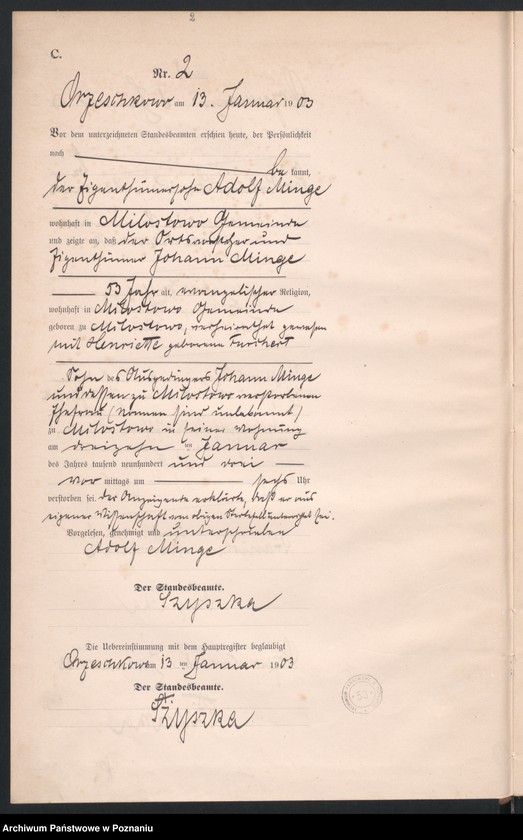 2
C.
Nr. 2
Orzeschkowo am 13. Januar 1903
Vor dem unterzeichneten Standesbeamten erschien heute, der Persönlichkeit
nach
be kannt,
der Eigenthümersohn Adolf Minge
wohnhaft in Milostowo Gemeinde
und zeigte an, daß der Ortsvorsteher und
Eigenthümer Johann Minge
53 Jahr alt, evangelischer Religion,
wohnhaft in Milostowo Gemeinde
geboren zu Milostowo, verheirathet gewesen
mit Henriette geborene
Sohn des Ausgedingers Johann Minge
und dessen zu Milostowo verstorbenen
Ehefrau (Namen sind unbekannt)
zu Milostowo in seiner Wohnung
am dreizehnten Januar
des Jahres tausend neunhundert und drei
vor mittags um sechs Uhr
verstorben sei. Der Anzeigende erklärte, daß er aus
eigener Wissenschaft vom obigen Sterbefall unterrichtet sei.
Vorgelesen, genehmigt und unterschrieben
Adolf Minge
Der Standesbeamte.
Szyszka
Die Uebereinstimmung mit dem Hauptregister beglaubigt
Orzeschkowo am 13 ten Januar 1903
Der Standesbeamte.
Szyszka
53
Archiwum Państwowe w Poznaniu